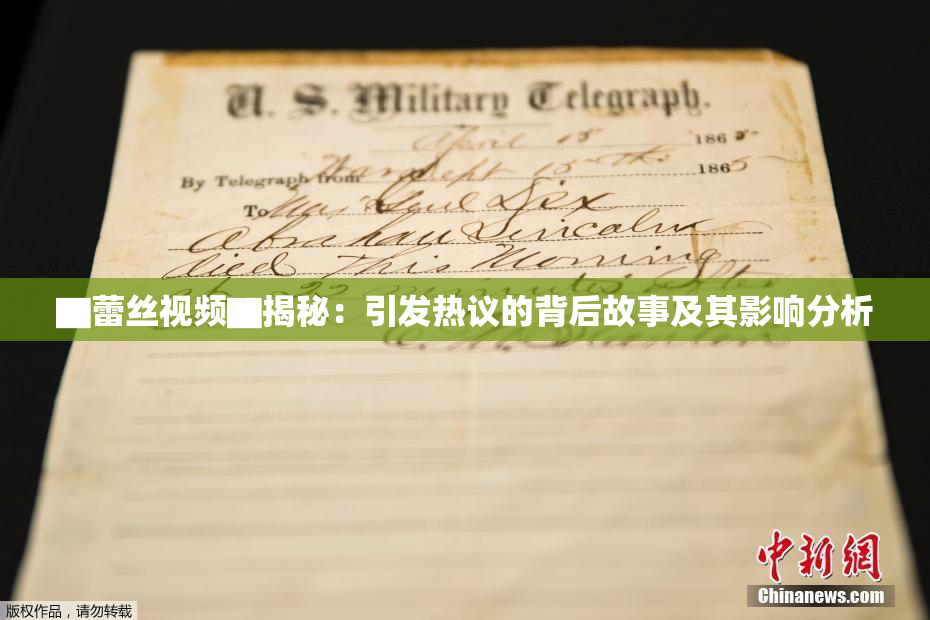 U. S. Military Telegraph.
April 15 1865.
By Telegraph from War Dept 15th 1865
To Maj Genl Dix
Abraham Lincoln
died This Morning
at 22 minutes after
▇蕾丝视频▇揭秘：引发热议的背后故事及其影响分析
E. M. Stanton
中新网
Chinanews.com
版权作品，请勿转载